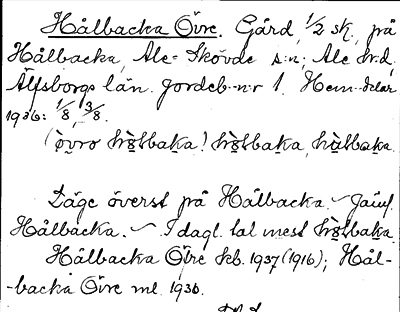 Hålbacka Övre. Gård, 1/2 sk, på
Hålbacka, Ale-Skövde s:n; Ale hrd.
Älfsborgs län. Jordeb.-n:r 1. Hem.-delar
1936: 1/8, 3/8.
(ò̤vrə hò̤ɫbaka! hò̤ɫbaka, hàɫbaka.
Läge överst på Hålbacka. ~ Jämf.
Hålbacka. ~ I dagl. tal mest hò̤ɫbaka.
Hålbacka Övre kb. 1937 (1916); Hål-
-backa Övre ml. 1936.